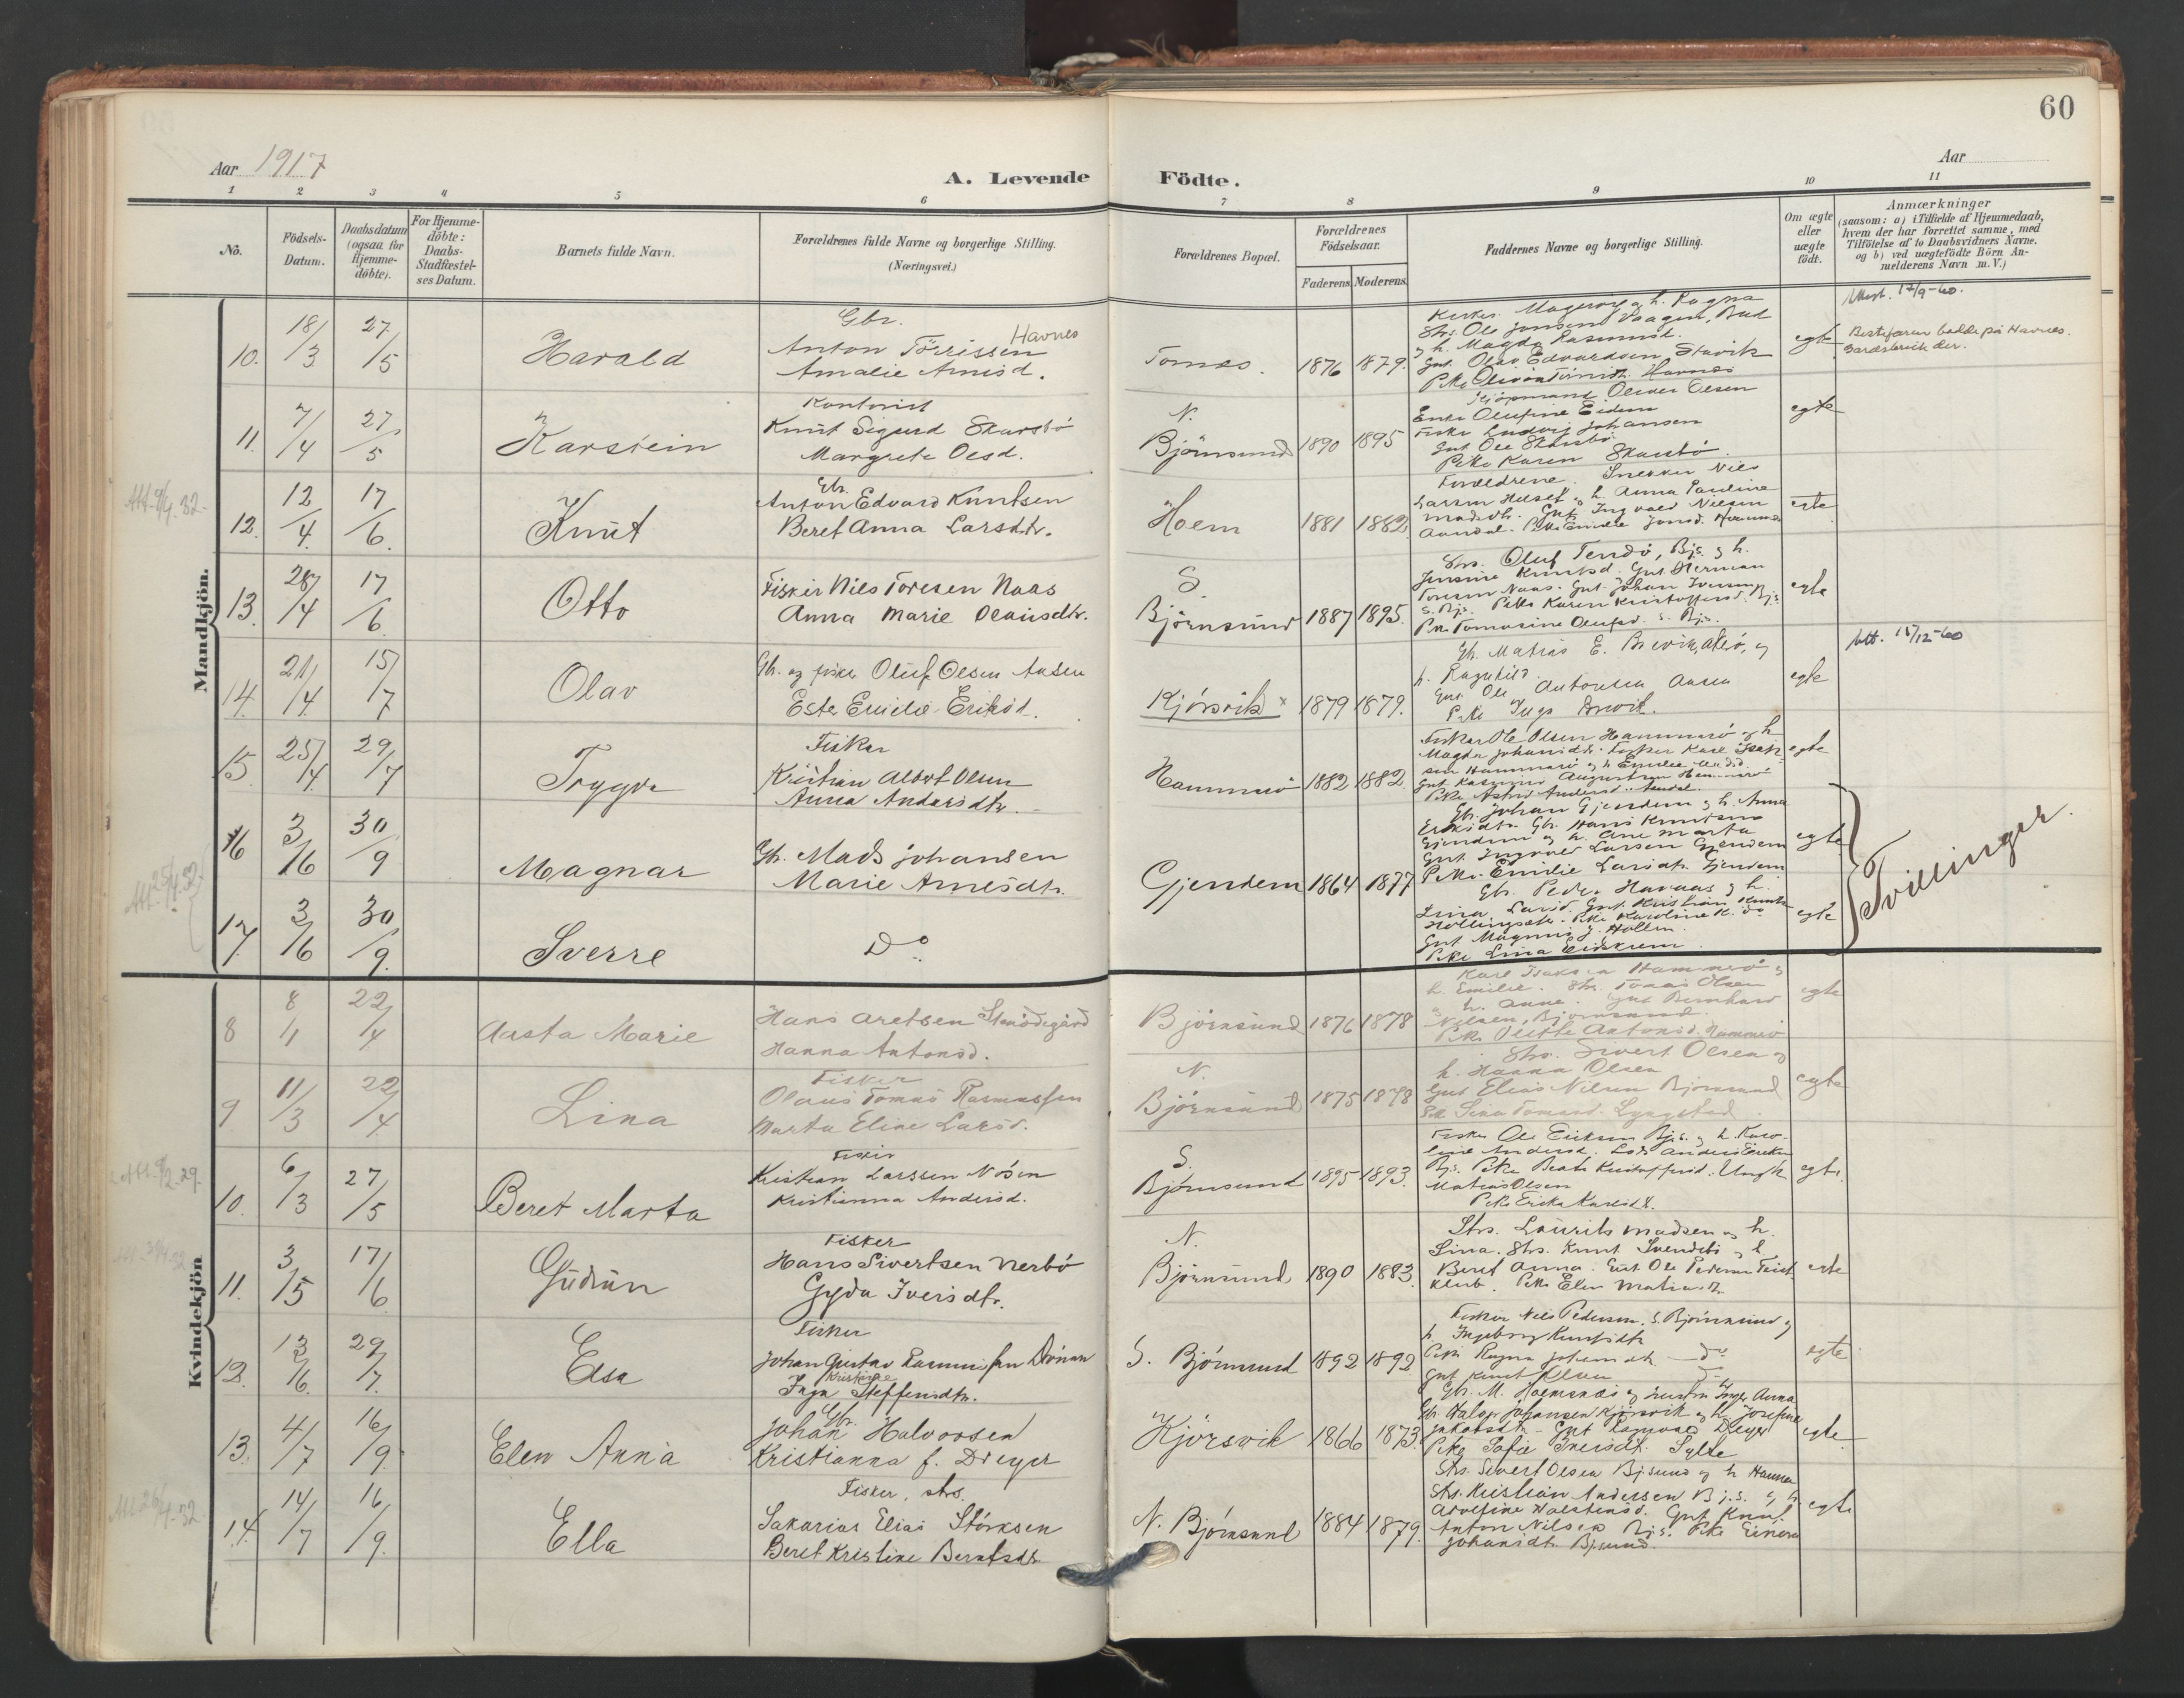 60
Aar 1917
Aar
A. Levende Födte.
1 2 3 4 5 6 7 8 9 10 11
No.
Födsels-
Datum.
Daabsdatum
(ogsaa for
Hjemme-
döbte).
For Hjemme-
döbte:
Daabs-
Stadfæstel-
ses Datum.
Barnets fulde Navn.
Forældrenes fulde Navne og borgerlige Stilling.
(Næringsvei.)
Forældrenes Bopæl.
Forældrenes
Födselsaar.
Faderens. Moderens.
Faddernes Navne og borgerlige Stilling.
Om ægte
eller
uægte
födt.
Anmærkninger
(saasom: a) i Tilfælde af Hjemmedaab,
hvem der har forrettet samme, med
Tilföielse af to Daabsvidners Navne.
og b) ved uægtefödte Börn An-
melderens Navn m. V.)
Mandkjön.
10. 18/3 27/5 Harald
Gbr.
Anton Törrissen Havnes
Amalie Arnisd.
Tornes. 1876 1879.
Magda Rasmusd.
Olav Edvardsen, Stavik
egte
17/9-60.
Bestefaren bodde på Havnes.
11. 7/4 27/5 Karstein
Kontorist
Knut Sigurd Skarsbö
Margrete Olsd.
N.
Björnsund 1890 1895
Kjöpmand Oliver Olsen
Enke Olufine Eidem
Fisker Ludvig Johansen
Gut Ole Skarsbö
Pike Karen Skarsbö.
egte
Att. 9/4. 32.
12. 12/4. 17/6. Knut
Gbr.
Anton Edvard Knutsen
Beret Anna Larsdtr.
Hoem 1881 1882.
Forældrene. Snekker Nils
Larsen Huset og h. Anna Pauline
Madsdtr. Gut Ingvald Nielsen
egte
13. 28/4 17/6. Otto
Fisker Nils Toresen Naas
Anna Marie Olausdtr.
S.
Björnsund 1887 1895.
Strs. Oluf Tendö, Bjs. og h.
Jensine Knutsd. Gut Herman
Toresen Naas. Gut Johan Iversen
S. Bjs. Pike Karen Kristoffersd. Bjs.
Pike Tomasine Olufsd. S. Bjs.
egte
14. 21/4. 15/7 Olav
Gbr. og fisker Oluf Olsen Aasen
Ester Emilie Eriksd.
Kjörsvik x 1879 1879.
Gbr. Matias E. Brevik, og
h. Ragnhild.
Gut Ole Antonsen Aasen
Pike Inga Brevik.
egte
Att. 15/12-60
15 25/4 29/7 Trygve
Fisker
Kristian Albert Olsen
Anna Andersdtr.
Hammerö 1882 1882.
Fisker Ole Olsen Hammerö og h.
Magda Johansdtr. Fisker Karl Isak-
sen Hammerö og h. Emilie
egte
16 3/6 30/9 Magnar
Gbr. Mads Johansen
Marie Arnesdtr.
Gjendem 1864 1877
Gbr. Johan Gjendem og h. Anna
Eriksdtr. Gbr. Hans Knutsen
Gjendem og h. Ane Marta
Gut Ingvald Larsen Gjendem
Pike Emilie Larsdtr. Gjendem
egte
Att. 25/4. 32.
17. 3/6 30/9. Sverre
Do.
Gbr. Peder Havnaas og h.
Lina Larsd. Gut Kristian
Gut Magnus J. Hollen.
Pike Lina Eidskrem
egte
Tvillinger.
Kvindekjön
8 8/1 22/4 Aasta Marie
Hans Aretsen
Hanna Antonsd.
Björnsund 1876 1878
Karl Isaksen Hammerö og
h. Emilie. Strs. Tomas Olsen
og h. Anne. Gut Bernhard
Nilsen, Björnsund.
Pike Olette Antonsd. Hammerö
egte
9 11/3 22/4 Lina
Fisker
Olaus Tomas Rasmussen
Marta Eline Larsd.
N.
Björnsund 1875 1878
Strs. Sivert Olsen og
h. Hanna Olsen
Gut Elias Nilsen Björnsund
Pike Lina Tomasd. Lyngstad.
egte
10. 6/3 27/5 Beret Marta
Fisker
Kristian Larssen Nösen
Kristianna Andersd.
S.
Björnsund 1895 1893.
Fisker Ole Eriksen Bjs. og h. Karo-
line Andersd. Anders Eriksen
Bjs. Pike Beate Kristoffersd. Ungk.
Matias Olsen
Pike Ericka Karlsdtr.
egte.
11. 3/5 17/6 Gudrun
Fisker
Hans Sivertsen Nerbö
Gyda Iversdtr.
N.
Björnsund 1890 1883.
Strs. Laurits Madsen og h.
Lina. Strs. Knut Svendsbö og h.
Beret Anna. Gut Ole Pedersen Feist-
klub. Pike Elen Matiasdtr.
egte
12. 13/6. 29/7. Elsa
Fisker
Johan Gustav Rasmussen Drönen
Inga Kristine Steffensdtr.
S. Björnsund 1892 1892
Fisker Nils Pedersen, S. Björnsund og
h. Ingeborg Knutsdtr.
Pike Ragna Johansdtr. do
Gut Knut Olsen do
egte
13. 4/7 16/9. Elen Anna
Gbr.
Johan Halvorsen
Kristianna f. Dreyer
Kjörsvik 1866 1873.
Gbr. M. Hoemsnes og hustru Inger Anna
Gbr. Halvor Johansen Kjörsvik og h. Josefine
Jakobsdtr. Gut Ragnvald Dreyer
Pike Sofie Iversdt. Sylte
egte
14. 14/7 16/9. Ella
Fisker, strs.
Sakarias Elias Störksen
Beret Kristine Berntsdtr.
N. Björnsund 1884 1879.
Strs. Sivert Olsen Bjsund og h. Hanna
Strs. Kristian Andersen Bj.s. og h.
Gut Knut
Anton Nilsen Bjs. Pike Einora
Johansdtr. Bjsund.
egte